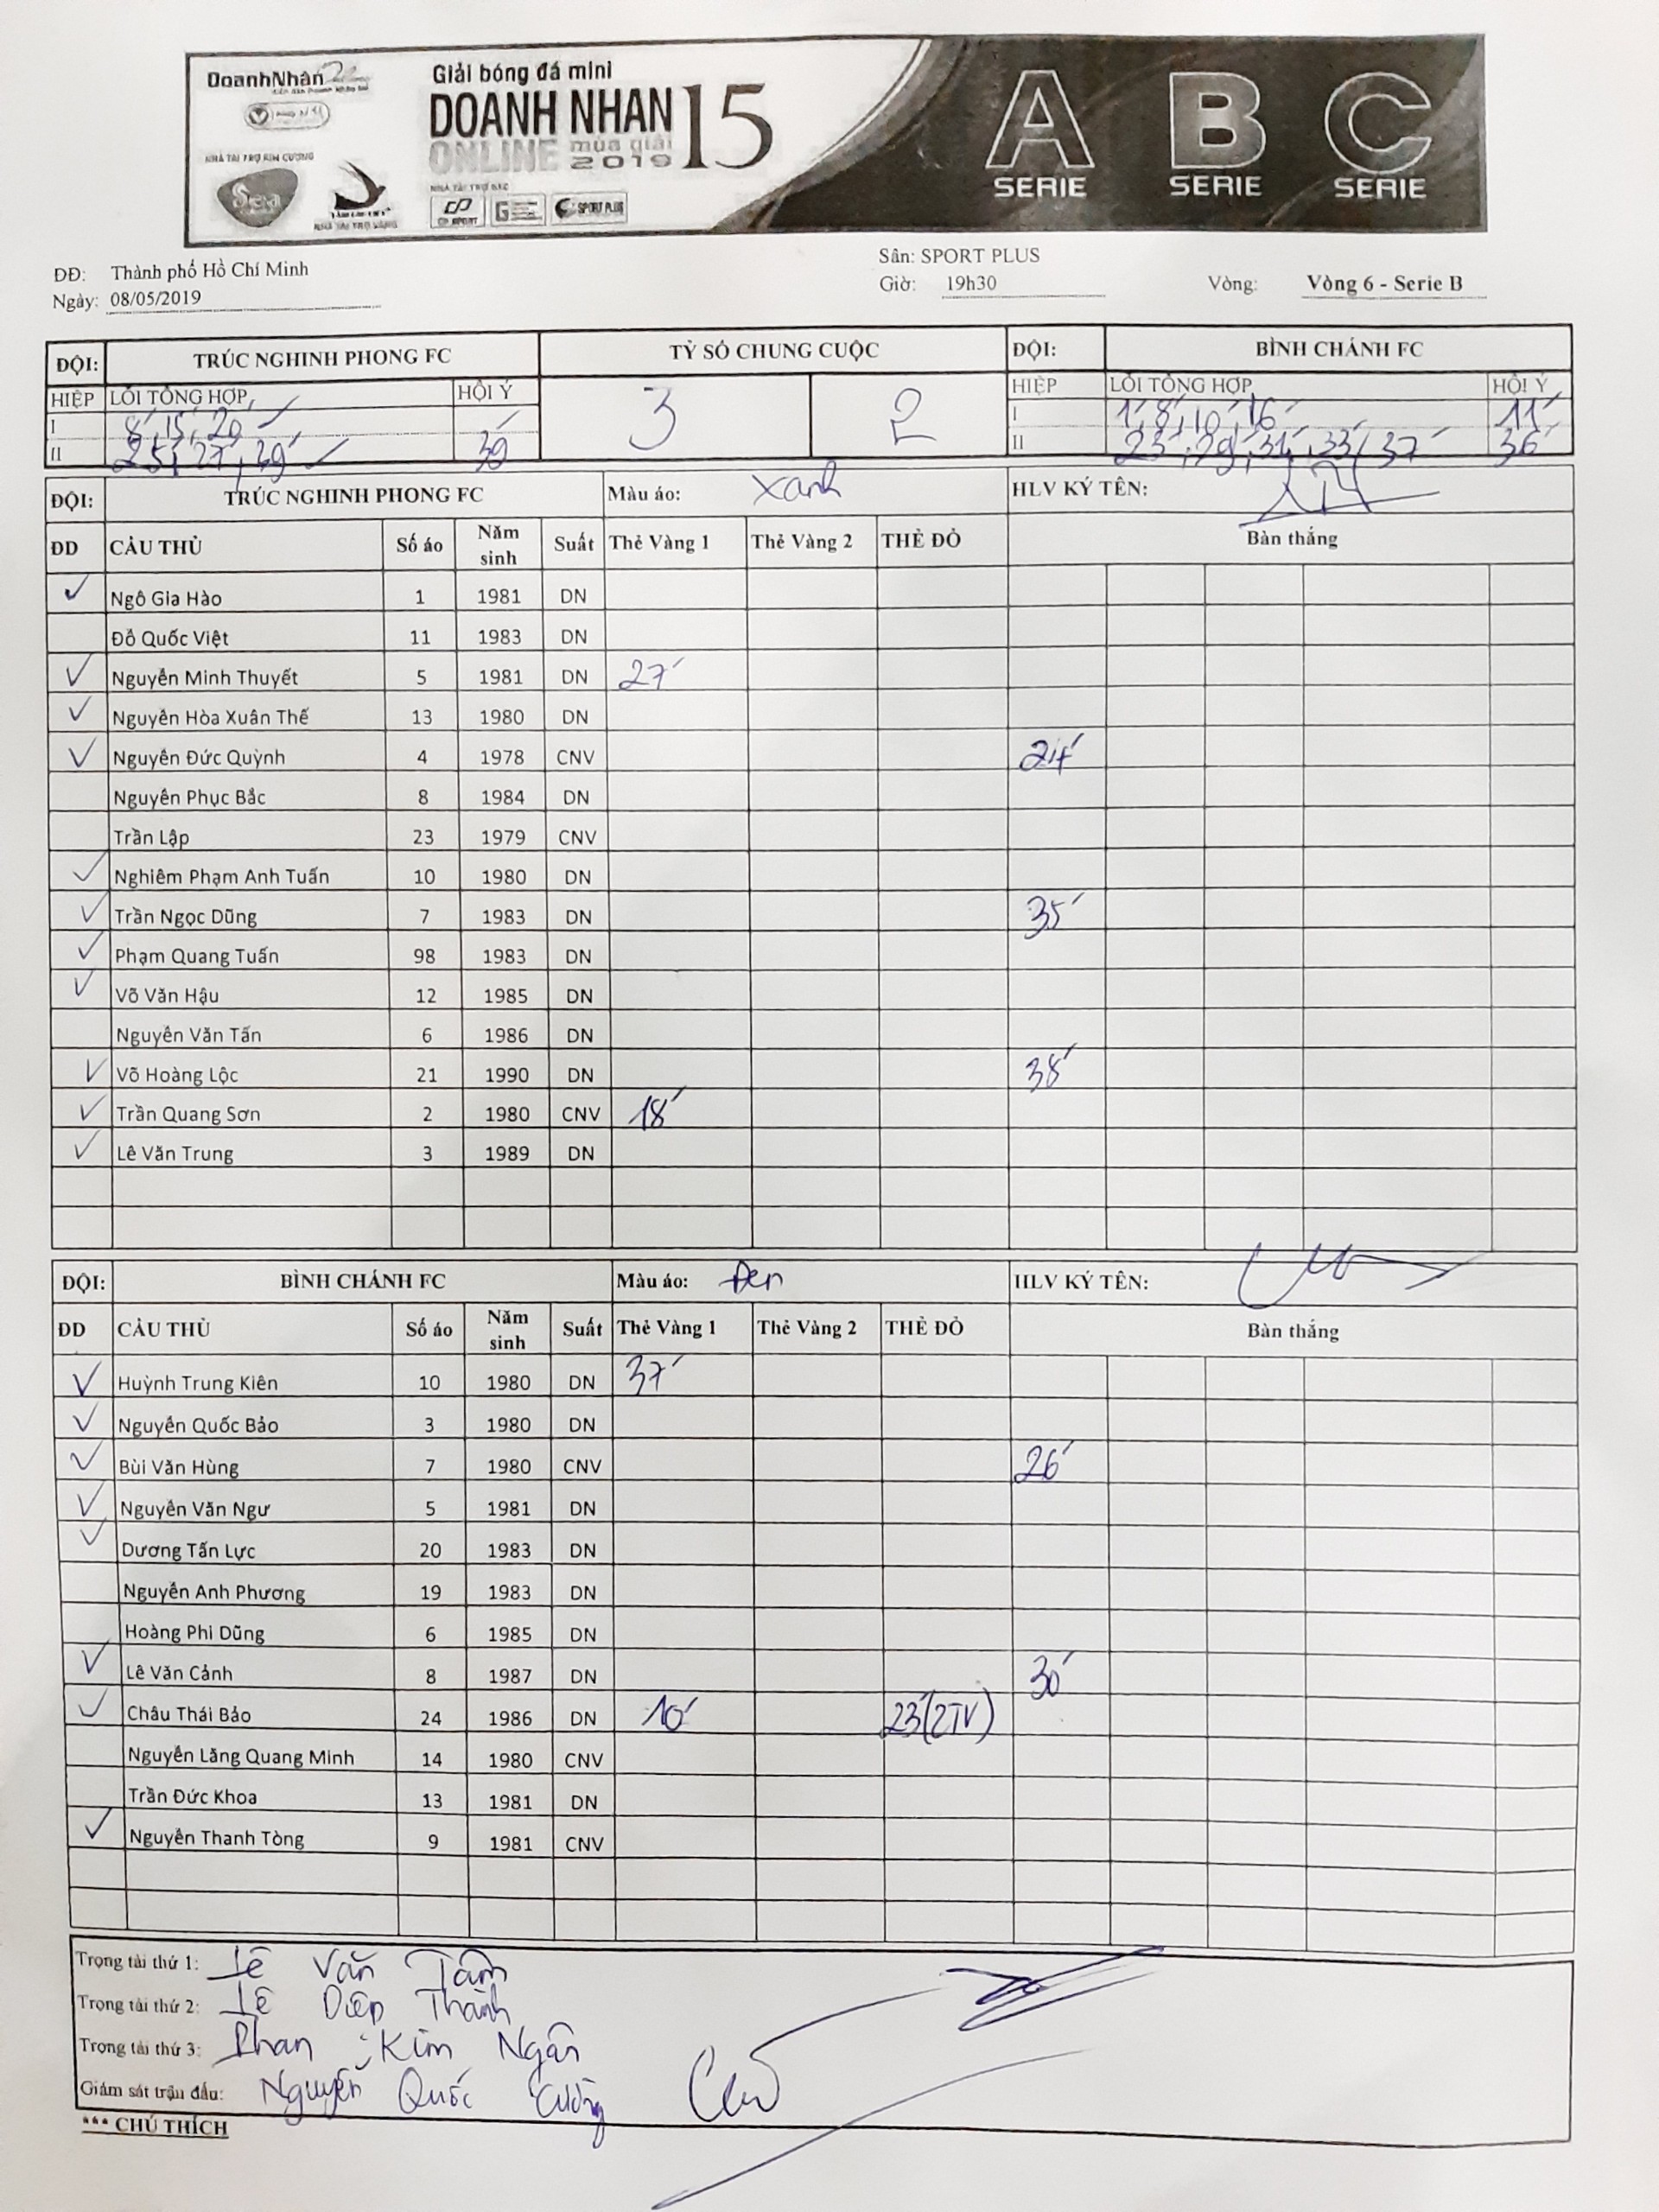 DoanhNhân
Giải bóng đá mini
DOANH NHAN 15
ONLINE mùa giải 2019
NHÀ TÀI TRỢ KIM CƯƠNG
NHÀ TÀI TRỢ BẠC
SPORT PLUS
NHÀ TÀI TRỢ VÀNG
A SERIE B SERIE C SERIE
ĐĐ: Thành phố Hồ Chí Minh Sân: SPORT PLUS
Ngày: 08/05/2019 Giờ: 19h30 Vòng: Vòng 6 - Serie B
ĐỘI: TRÚC NGHINH PHONG FC TỶ SỐ CHUNG CUỘC ĐỘI: BÌNH CHÁNH FC
HIỆP LỖI TỔNG HỢP HỘI Ý 3 2 HIỆP LỖI TỔNG HỢP HỘI Ý
I 8', 15', 20' I 1', 8', 10', 16' 11'
II 25', 27', 39' 39' II 23', 29', 31', 33', 37' 36'
ĐỘI: TRÚC NGHINH PHONG FC Màu áo: Xanh HLV KÝ TÊN:
ĐD CẦU THỦ Số áo Năm sinh Suất Thẻ Vàng 1 Thẻ Vàng 2 THẺ ĐỎ Bàn thắng
✓ Ngô Gia Hào 1 1981 DN
Đỗ Quốc Việt 11 1983 DN
✓ Nguyễn Minh Thuyết 5 1981 DN 27'
✓ Nguyễn Hòa Xuân Thế 13 1980 DN
✓ Nguyễn Đức Quỳnh 4 1978 CNV 24'
Nguyễn Phục Bắc 8 1984 DN
Trần Lập 23 1979 CNV
✓ Nghiêm Phạm Anh Tuấn 10 1980 DN
✓ Trần Ngọc Dũng 7 1983 DN 35'
✓ Phạm Quang Tuấn 98 1983 DN
✓ Võ Văn Hậu 12 1985 DN
Nguyễn Văn Tấn 6 1986 DN
✓ Võ Hoàng Lộc 21 1990 DN 38'
✓ Trần Quang Sơn 2 1980 CNV 18'
✓ Lê Văn Trung 3 1989 DN
ĐỘI: BÌNH CHÁNH FC Màu áo: Đen HLV KÝ TÊN:
ĐD CẦU THỦ Số áo Năm sinh Suất Thẻ Vàng 1 Thẻ Vàng 2 THẺ ĐỎ Bàn thắng
✓ Huỳnh Trung Kiên 10 1980 DN 37'
✓ Nguyễn Quốc Bảo 3 1980 DN
✓ Bùi Văn Hùng 7 1980 CNV 26'
✓ Nguyễn Văn Ngư 5 1981 DN
✓ Dương Tấn Lực 20 1983 DN
Nguyễn Anh Phương 19 1983 DN
Hoàng Phi Dũng 6 1985 DN
✓ Lê Văn Cảnh 8 1987 DN 30'
✓ Châu Thái Bảo 24 1986 DN 10' 23'(2TV)
Nguyễn Lăng Quang Minh 14 1980 CNV
Trần Đức Khoa 13 1981 DN
✓ Nguyễn Thanh Tòng 9 1981 CNV
Trọng tài thứ 1: Lê Văn Tâm
Trọng tài thứ 2: Lê Diệp Thành
Trọng tài thứ 3: Phan Kim Ngân
Giám sát trận đấu: Nguyễn Quốc Cường
*** CHÚ THÍCH